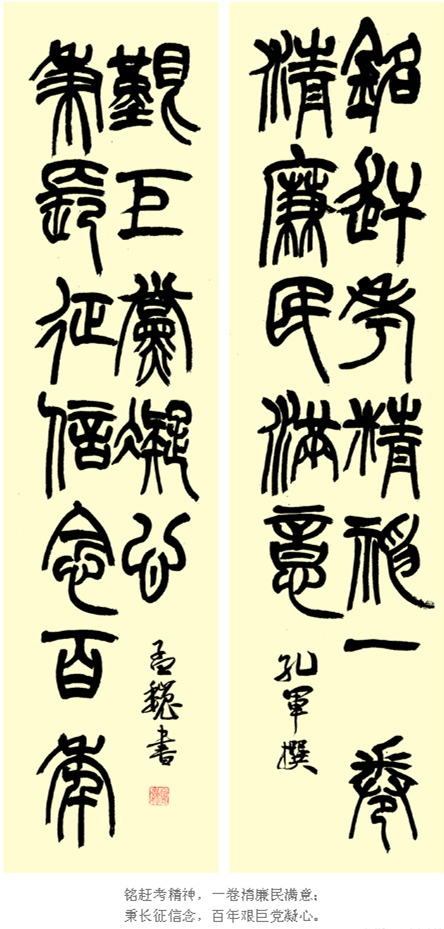 銘赶考精神一卷
清廉民滿意
孔軍撰
秉長征信念百年
艱巨黨凝心
孟魏書
铭赶考精神，一卷清廉民满意；
秉长征信念，百年艰巨党凝心。